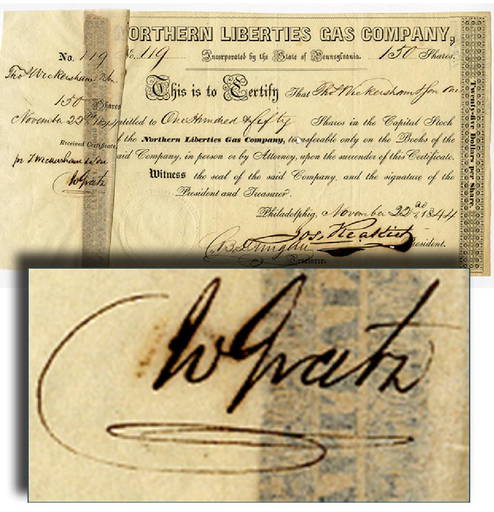 No. 119
Thos Wickersham & Son
150 Shares
November 22nd 1844
Received Certificate,
for T Wickersham & Son
W Gratz
NORTHERN LIBERTIES GAS COMPANY,
No. 119 Incorporated by the State of Pennsylvania. 150 Shares.
This is to Certify That Thos Wickersham & Son are
entitled to One Hundred & fifty Shares in the Capital Stock
of the Northern Liberties Gas Company, transferable only on the Books of the
said Company, in person or by Attorney, upon the surrender of this Certificate.
Witness the seal of the said Company, and the signature of the
President and Treasurer.
Philadelphia, November 22nd 1844
President.
Treasurer.
Twenty-five Dollars per Share
W Gratz